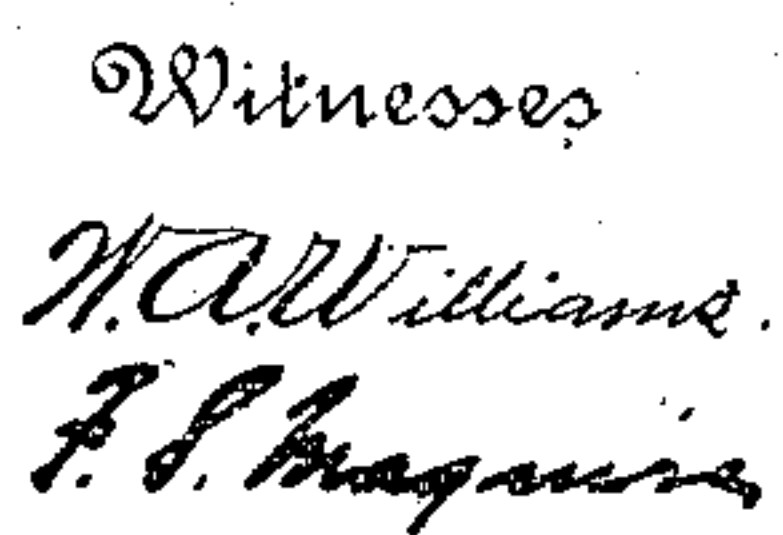 Witnesses
A. Williams.
F. S. Maguire